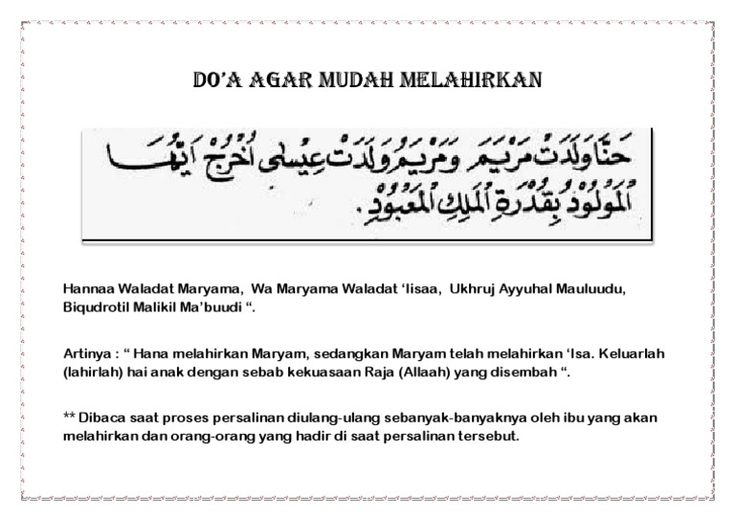 DO'A AGAR MUDAH MELAHIRKAN
حَنَّا وَلَدَتْ مَرْيَمَ وَمَرْيَمُ وَلَدَتْ عِيْسٰى اُخْرُجْ اَيُّهَا
الْمَوْلُوْدُ بِقُدْرَةِ الْمَلِكِ الْمَعْبُوْدِ.
Hannaa Waladat Maryama, Wa Maryama Waladat 'Iisaa, Ukhruj Ayyuhal Mauluudu,
Biqudrotil Malikil Ma'buudi “.
Artinya : “ Hana melahirkan Maryam, sedangkan Maryam telah melahirkan ‘Isa. Keluarlah
(lahirlah) hai anak dengan sebab kekuasaan Raja (Allaah) yang disembah “.
** Dibaca saat proses persalinan diulang-ulang sebanyak-banyaknya oleh ibu yang akan
melahirkan dan orang-orang yang hadir di saat persalinan tersebut.